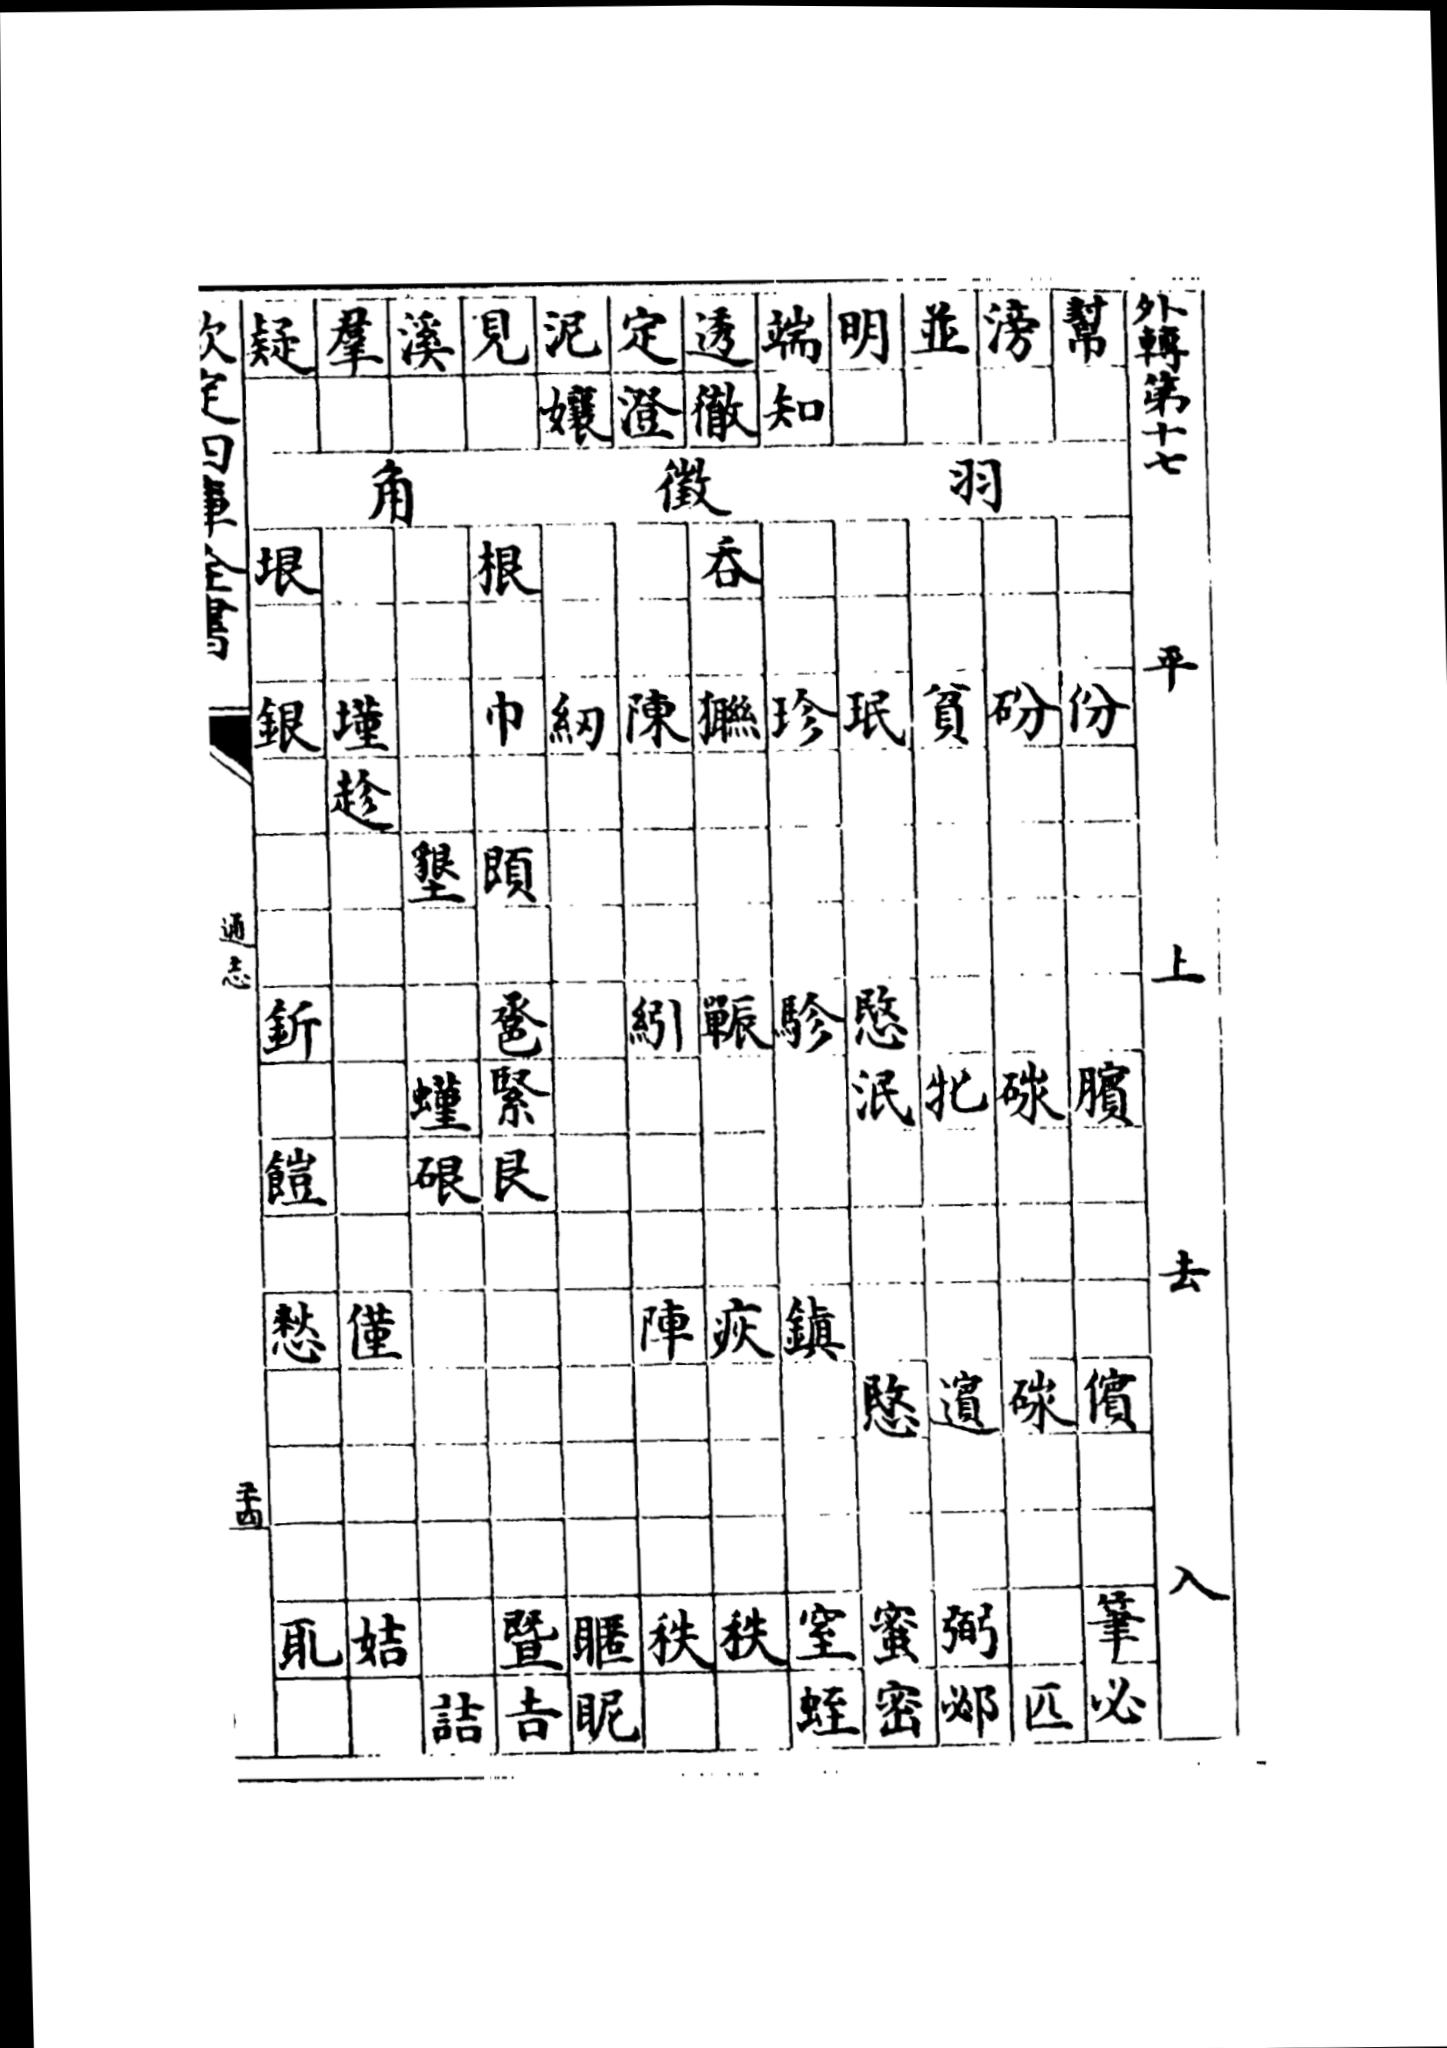 外轉第十七 平 上 去 入
幫 份 臏 儐 筆 必
滂 砏 硑 匹
並 貧 牝 弼 邲
明 珉 愍 泯 愍 蜜 密
端 知 珍 駗 鎮 窒 蛭
透 徹 吞 辴 疢 秩
定 澄 陳 紖 陣 秩
泥 孃 紉 暱 昵
見 根 巾 頣 巹 緊 艮 暨 吉
溪 墾 螼 硍 詰
羣 墐 趁 僅 姞
疑 垠 銀 釿 饐 憖 耴
羽 徵 角
欽定四庫全書
通志